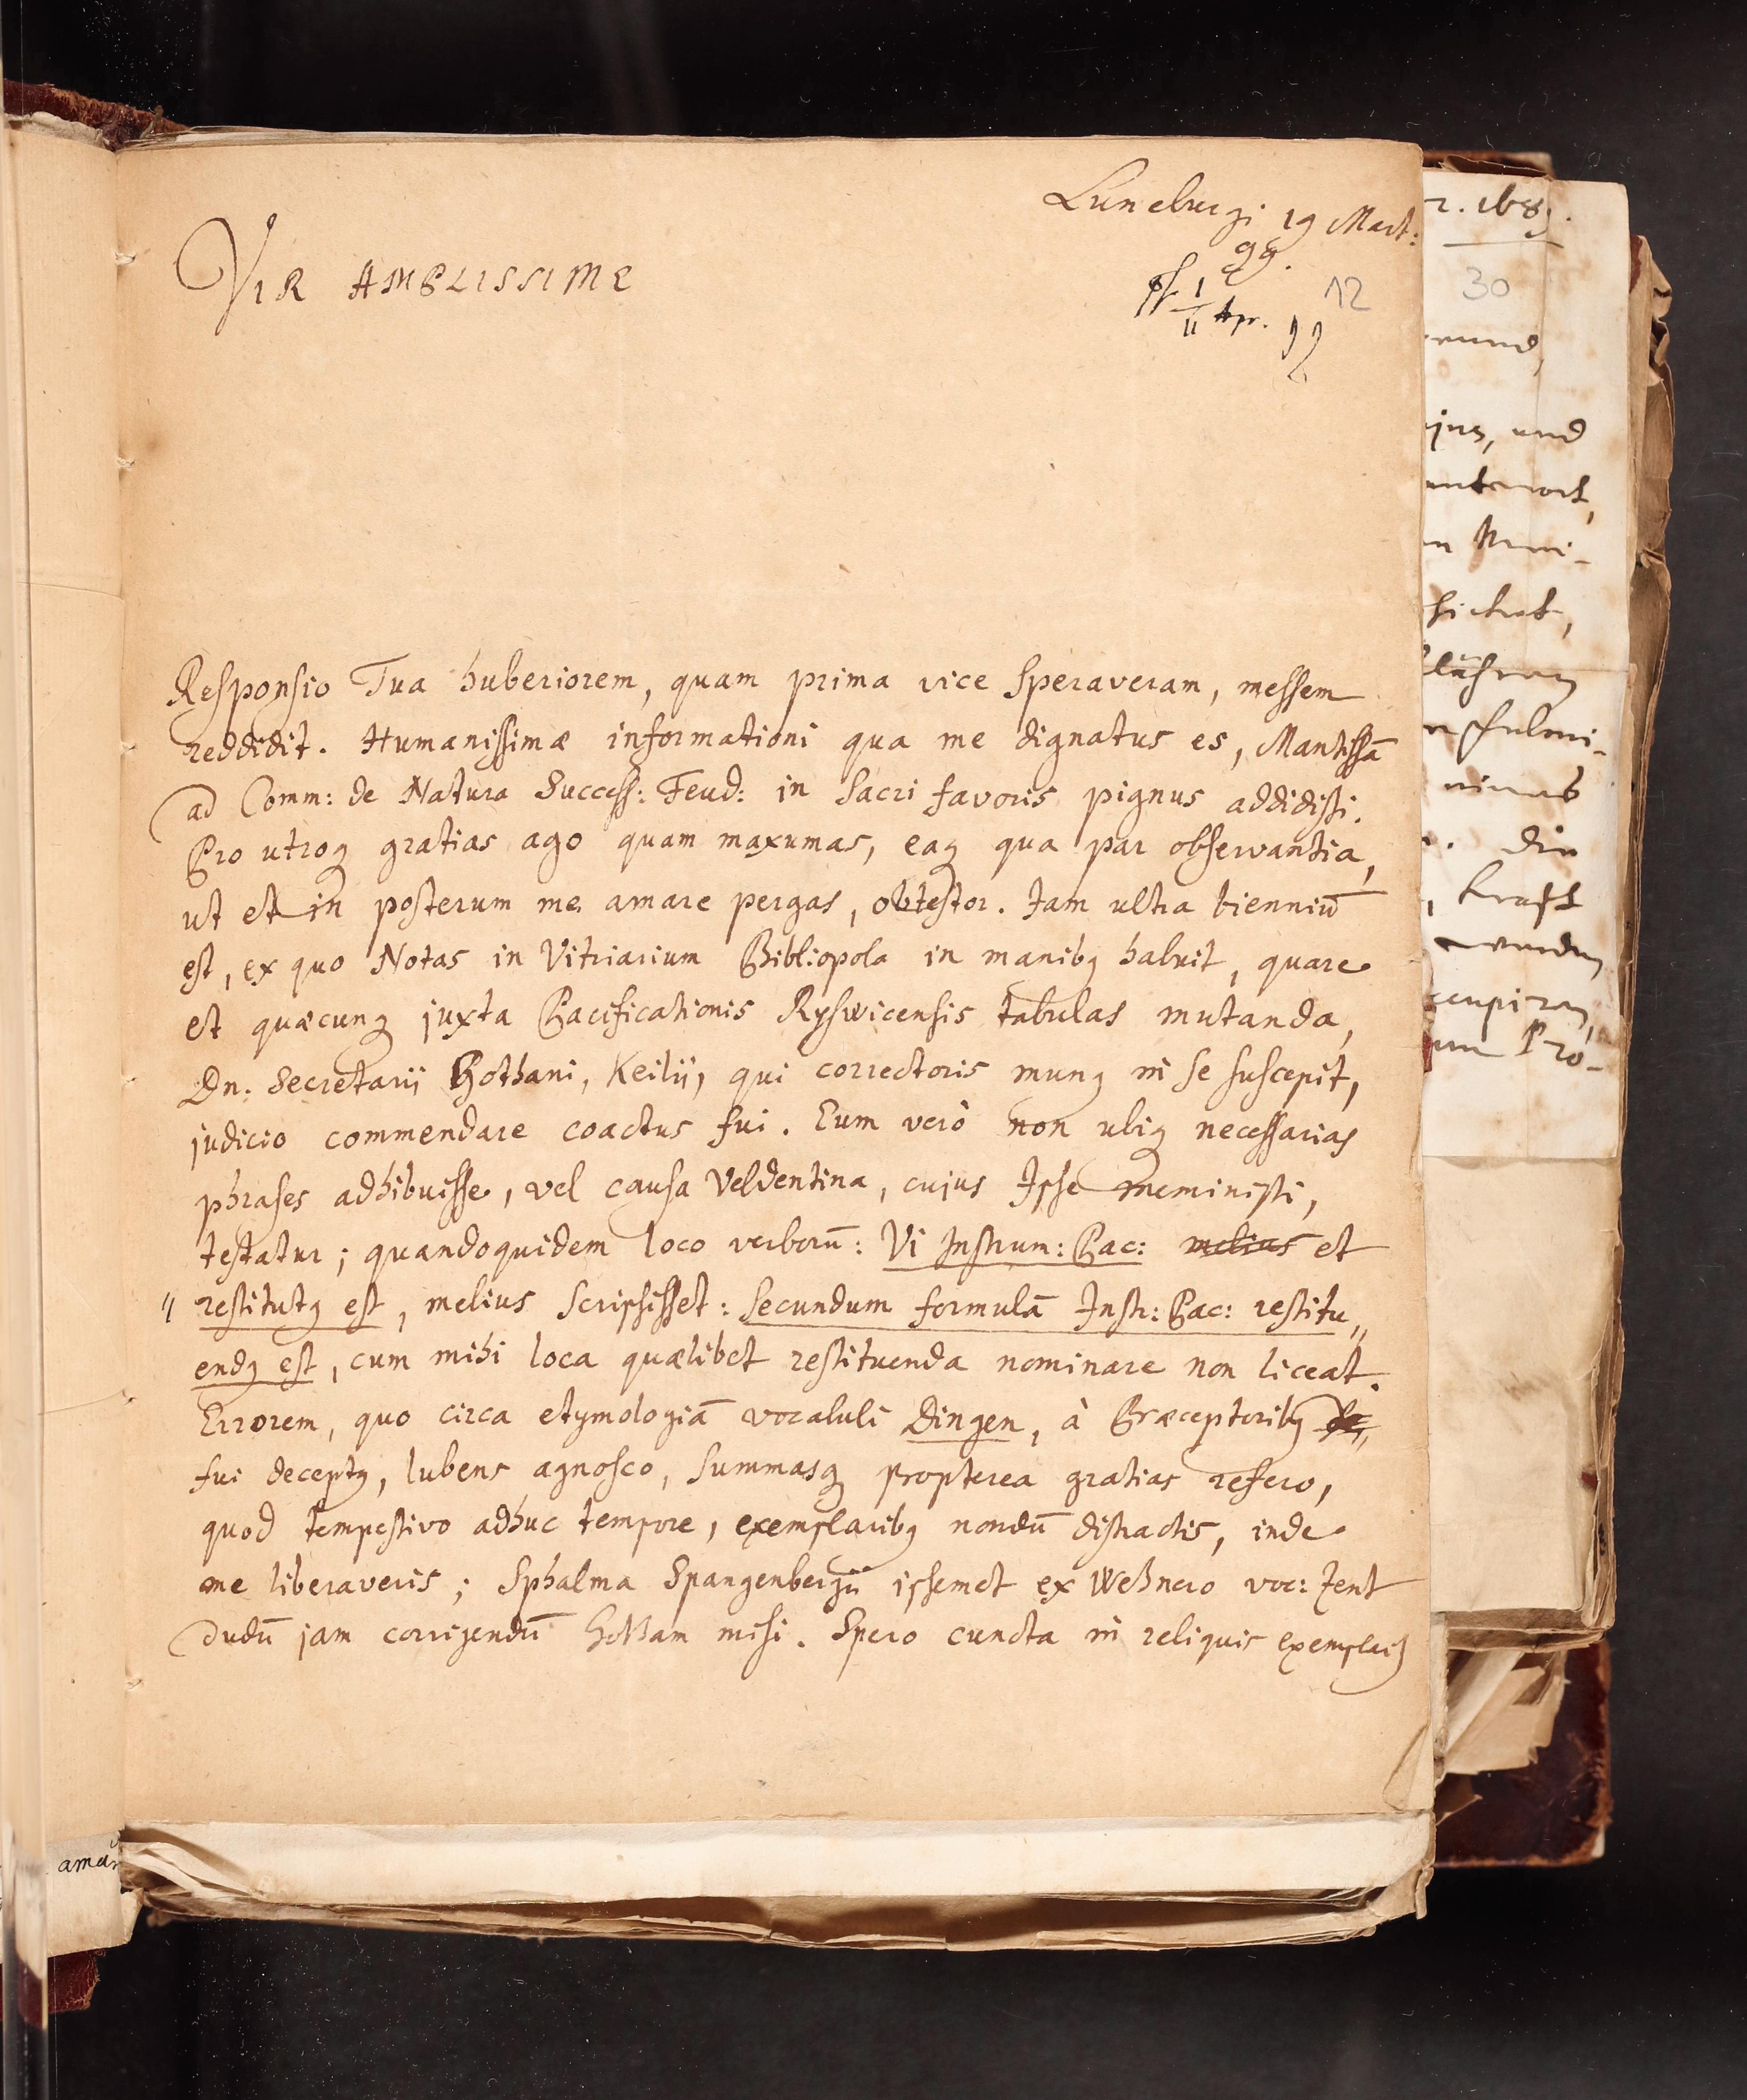 Luneburgi 19 Mart:
99.
1/11 Apr.
12
VIR AMPLISSIME
Responsio Tua huberiorem, quam prima vice speraveram, messem
reddidit. Humanissimæ informationi qua me dignatus es, Mantissā
ad Comm: de Natura Success: Feud: in sacri favoris pignus addidisti.
Pro utroq; gratias ago quam maxumas, eaq; qua par observantia,
ut et in posterum me amare pergas, obtestor. Jam ultra bienniū
est, ex quo Notas in Vitriarium Bibliopola in manib9 habuit, quare
et quæcunq; juxta Pacificationis Ryswicensis tabulas mutanda,
Dn. Secretarij Gothani, Keilij, qui correctoris mun9 in se suscepit,
judicio commendare coactus fui. Eum verò non ubiq; necessarias
phrases adhibuisse, vel causa Veldentina, cujus Ipse meministi,
testatur; quandoquidem loco verborū: Vi Instrum: Pac: melius et
restitut9 est, melius scripsisset: secundum formulā Instr: Pac: restitu„
end9 est, cum mihi loca quælibet restituenda nominare non liceat.
Errorem, quo circa etymologiā vocabuli Dingen, à Præceptorib9
fui decept9, lubens agnosco, summasq; propterea gratias refero,
quod tempestivo adhuc tempore, exemplarib9 nondū distractis, inde
me liberaveris; Sphalma Spangenbergū ipsemet ex Wehnero voc: Zent
dudū jam corrigendū Gotham misi. Spero cuncta in reliquis exemplarib9
r. 1689.
30
und
kraft
Pro-